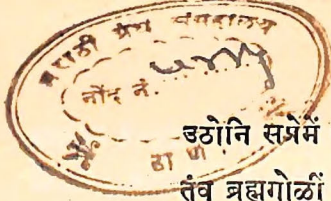 मराठी ग्रंथ संग्रहालय
नोंद नं.
ठाणे
उठोनि सप्रेमें
तंव ब्रह्मगोळीं